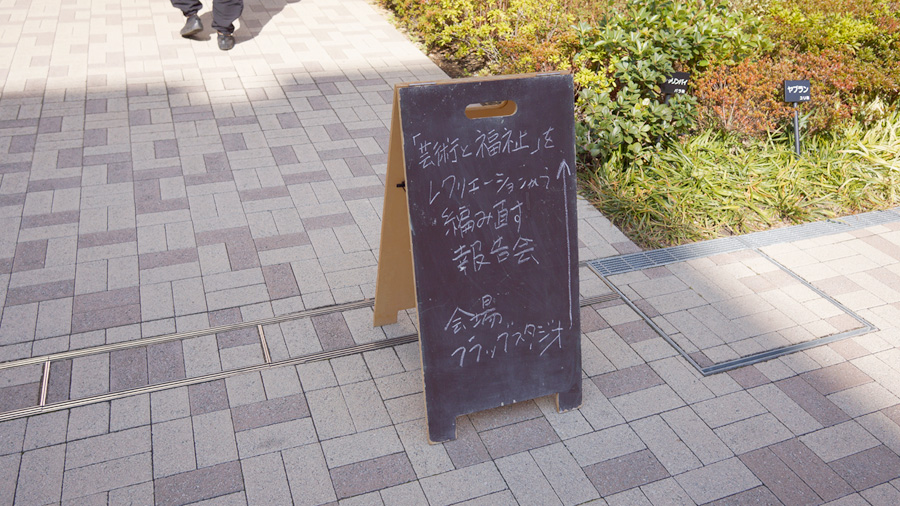 「芸術と福祉」を
レクリエーションから
編み直す
報告会
会場
ブラックスタジオ
ヤブラン